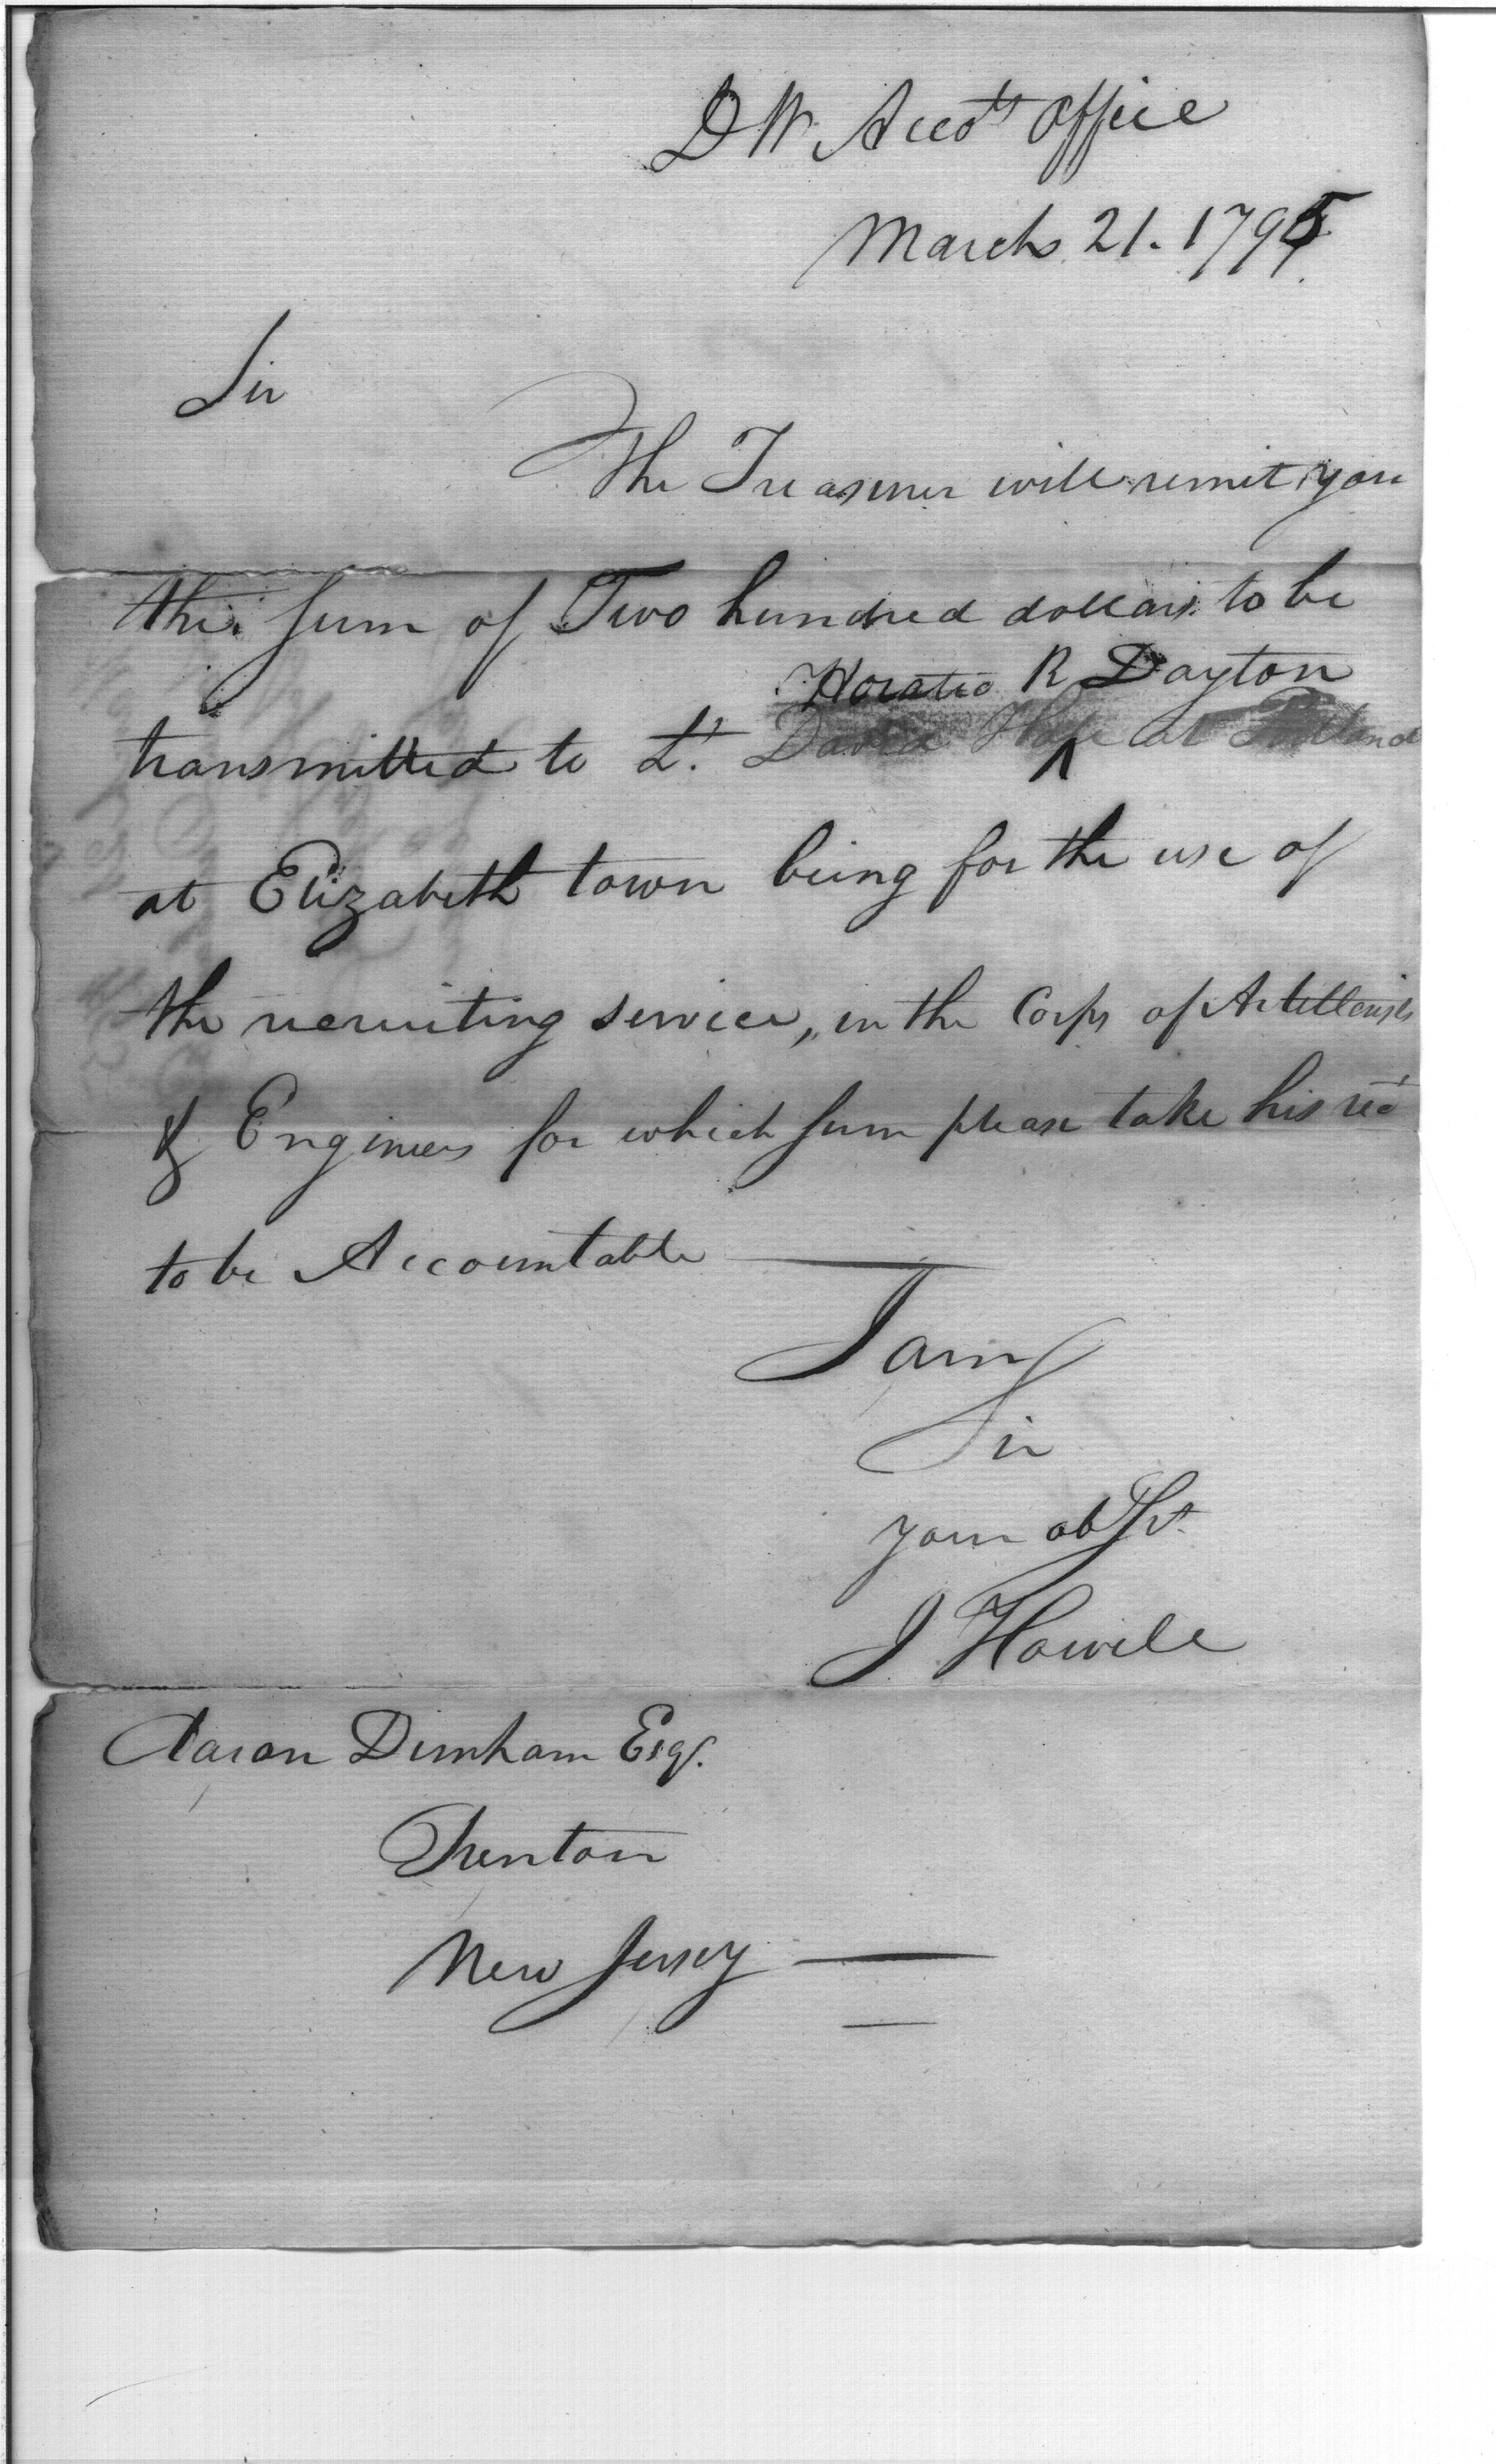 D W Accots Office
March 21. 1795
Sir
The Treasurer will remit you
the sum of Two hundred dollars to be
Horatio R Dayton
transmitted to Lt. David at
at Elizabeth town being for the use of
the recruiting service, in the Corps of Artillerists
& Engineers for which sum please take his rect
to be Accountable
I am
Sir
your ob Svt.
J Howell
Aaron Dunham Esqr.
Trenton
New Jersey